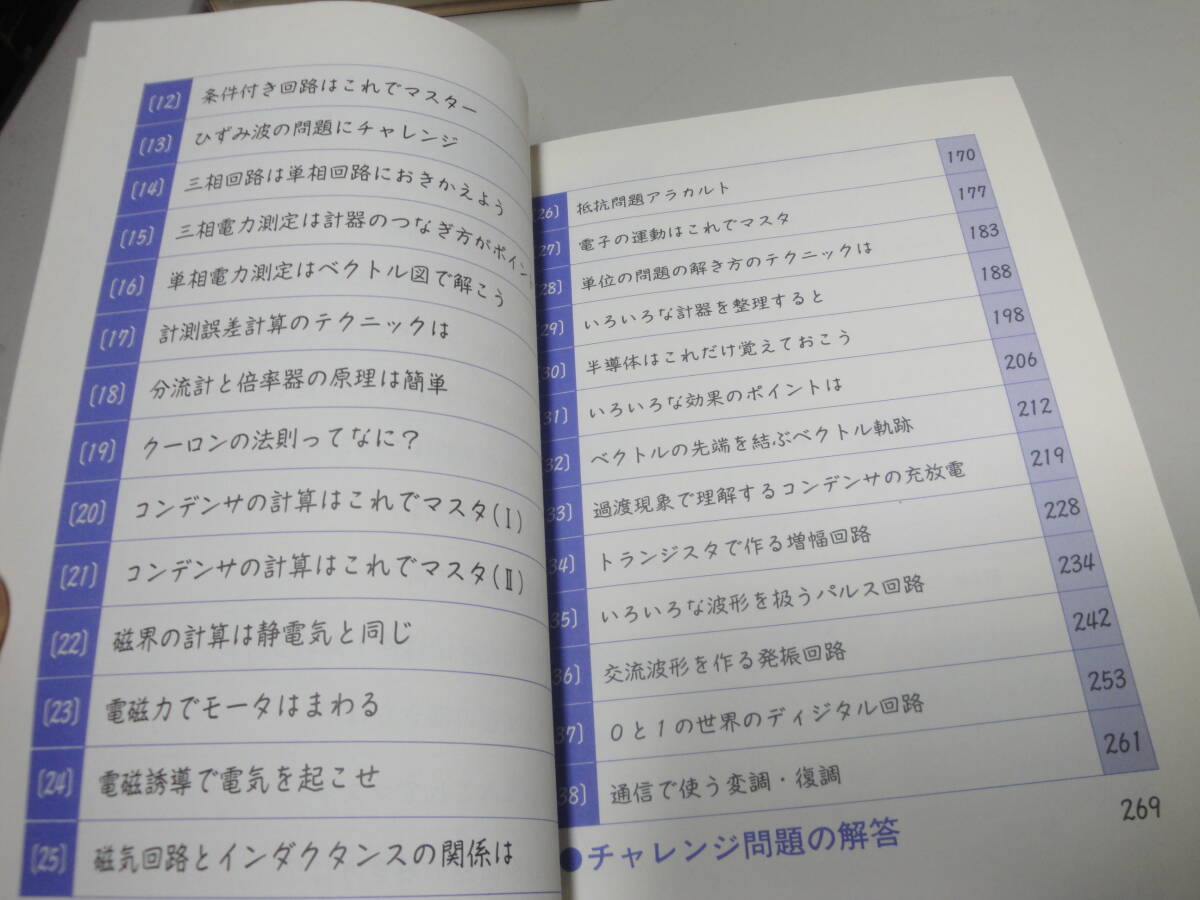 [12] 条件付き回路はこれでマスター
[13] ひずみ波の問題にチャレンジ
[14] 三相回路は単相回路におきかえよう
[15] 三相電力測定は計器のつなぎ方がポイン
[16] 単相電力測定はベクトル図で解こう
[17] 計測誤差計算のテクニックは
[18] 分流計と倍率器の原理は簡単
[19] クーロンの法則ってなに？
[20] コンデンサの計算はこれでマスタ(Ⅰ)
[21] コンデンサの計算はこれでマスタ(Ⅱ)
[22] 磁界の計算は静電気と同じ
[23] 電磁力でモータはまわる
[24] 電磁誘導で電気を起こせ
[25] 磁気回路とインダクタンスの関係は
26] 抵抗問題アラカルト 170
27] 電子の運動はこれでマスタ 177
28] 単位の問題の解き方のテクニックは 183
29] いろいろな計器を整理すると 188
30] 半導体はこれだけ覚えておこう 198
31] いろいろな効果のポイントは 206
32] ベクトルの先端を結ぶベクトル軌跡 212
33] 過渡現象で理解するコンデンサの充放電 219
34] トランジスタで作る増幅回路 228
35] いろいろな波形を扱うパルス回路 234
36] 交流波形を作る発振回路 242
37] 0と1の世界のディジタル回路 253
38] 通信で使う変調・復調 261
●チャレンジ問題の解答 269